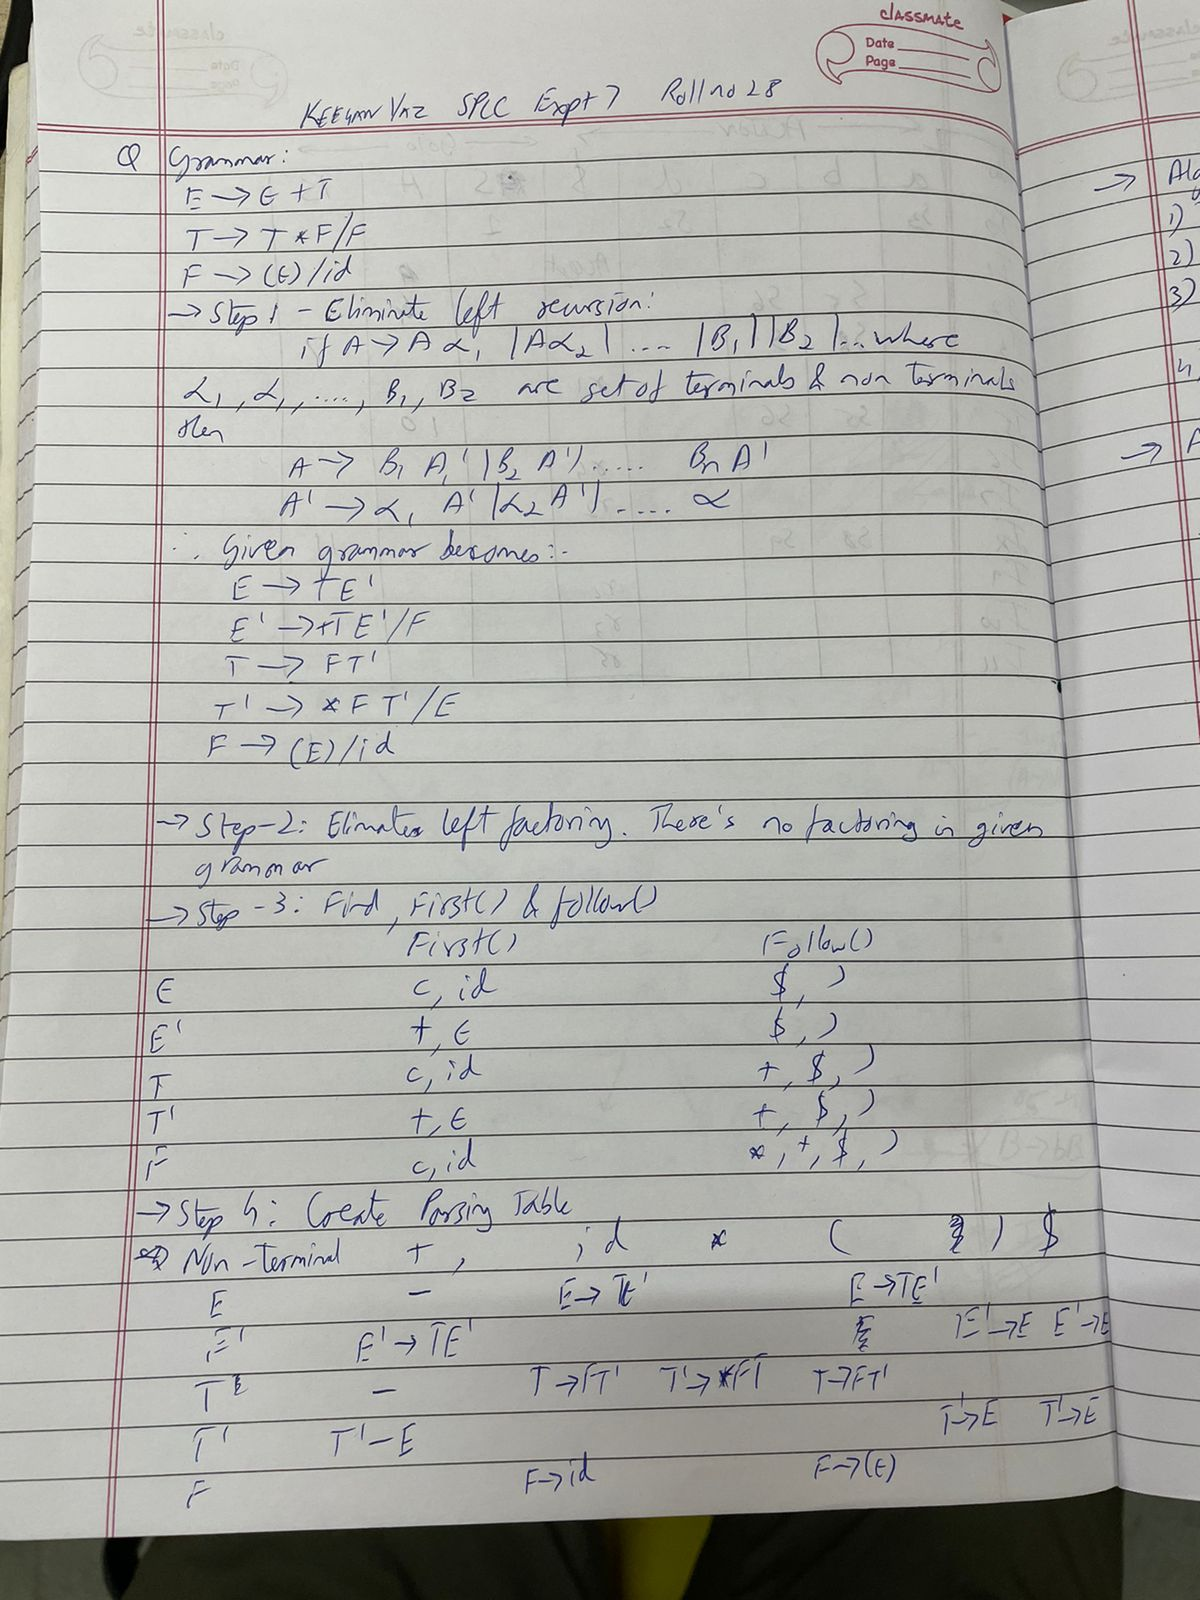 classmate
Date
Page
KEEGAN VAZ SPCC Expt 7 Roll no 28
Q Grammar:
E → E + T
T → T * F/F
F → (E)/id
→ Step 1 - Eliminate left recursion:
if A → A α, |Aα2| .... |B1||B2|... where
α1, α,, ...., B1, B2 are set of terminals & non terminals
then
A → B1 A,' |B2 A'| ..... Bn A'
A' → α, A' |α2 A'| ..... α
∴ Given grammar becomes:-
E → TE'
E' → +TE'/F
T → FT'
T' → * F T'/E
F → (E)/id
→ Step-2: Elimates left factoring. There's no factoring in given
grammar
→ Step -3: Find, First() & follow()
First() Follow()
E c, id $, )
E' +, ϵ $, )
T c, id +, $, )
T' +, ϵ +, $, )
F c, id *, +, $, )
→ Step 4: Create Parsing Table
Non-terminal +, id * ( ) $
E - E → TE' E → TE'
E' E' → TE' E' → E E' → E
T - T → FT' T' → *FT T → FT'
T' T' - E T' → E T' → E
F F → id F → (E)
→ Alg
1)
2)
3)
4,
→ A